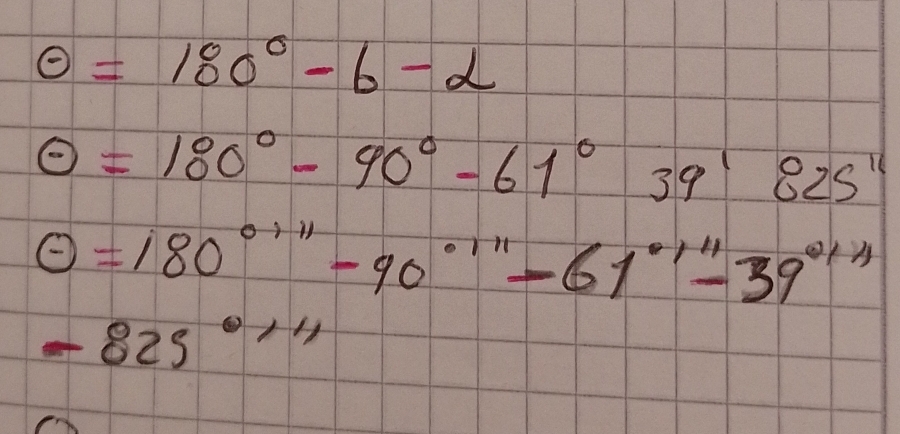 Θ = 180° - 6 - α
Θ = 180° - 90° - 61° 39' 825"
Θ = 180°'" - 90°'" - 61°'" - 39°'"
- 825°'"